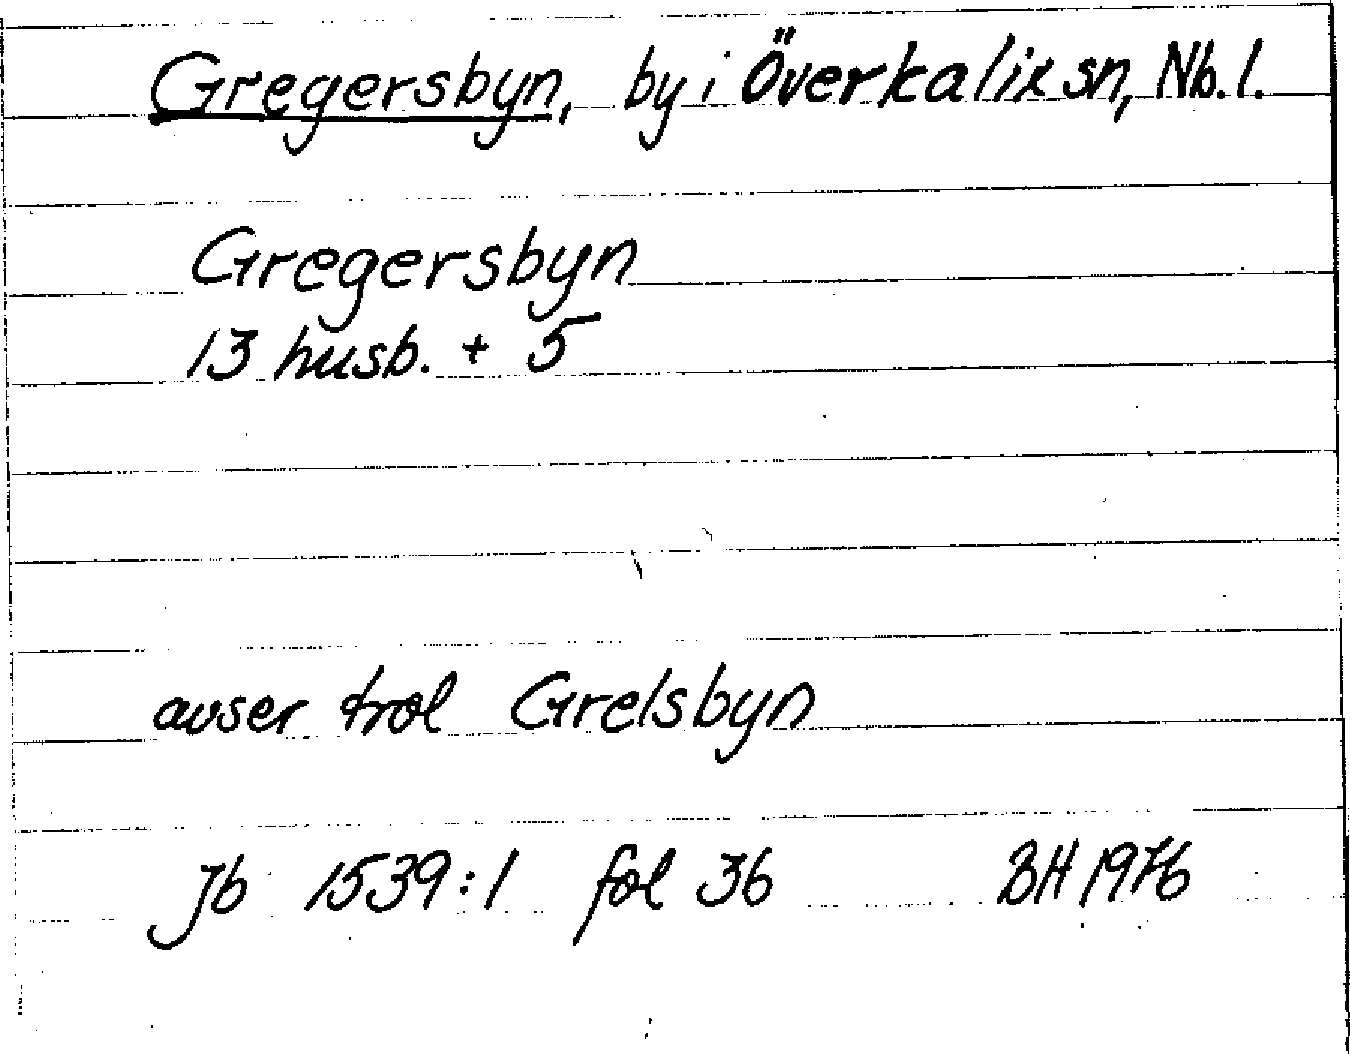 Gregersbyn, by i Överkalix sn, Nb. l.
Gregersbyn
13 husb. + 5
avser trol Grelsbyn
Jb 1539:1 fol 36 BH 1976